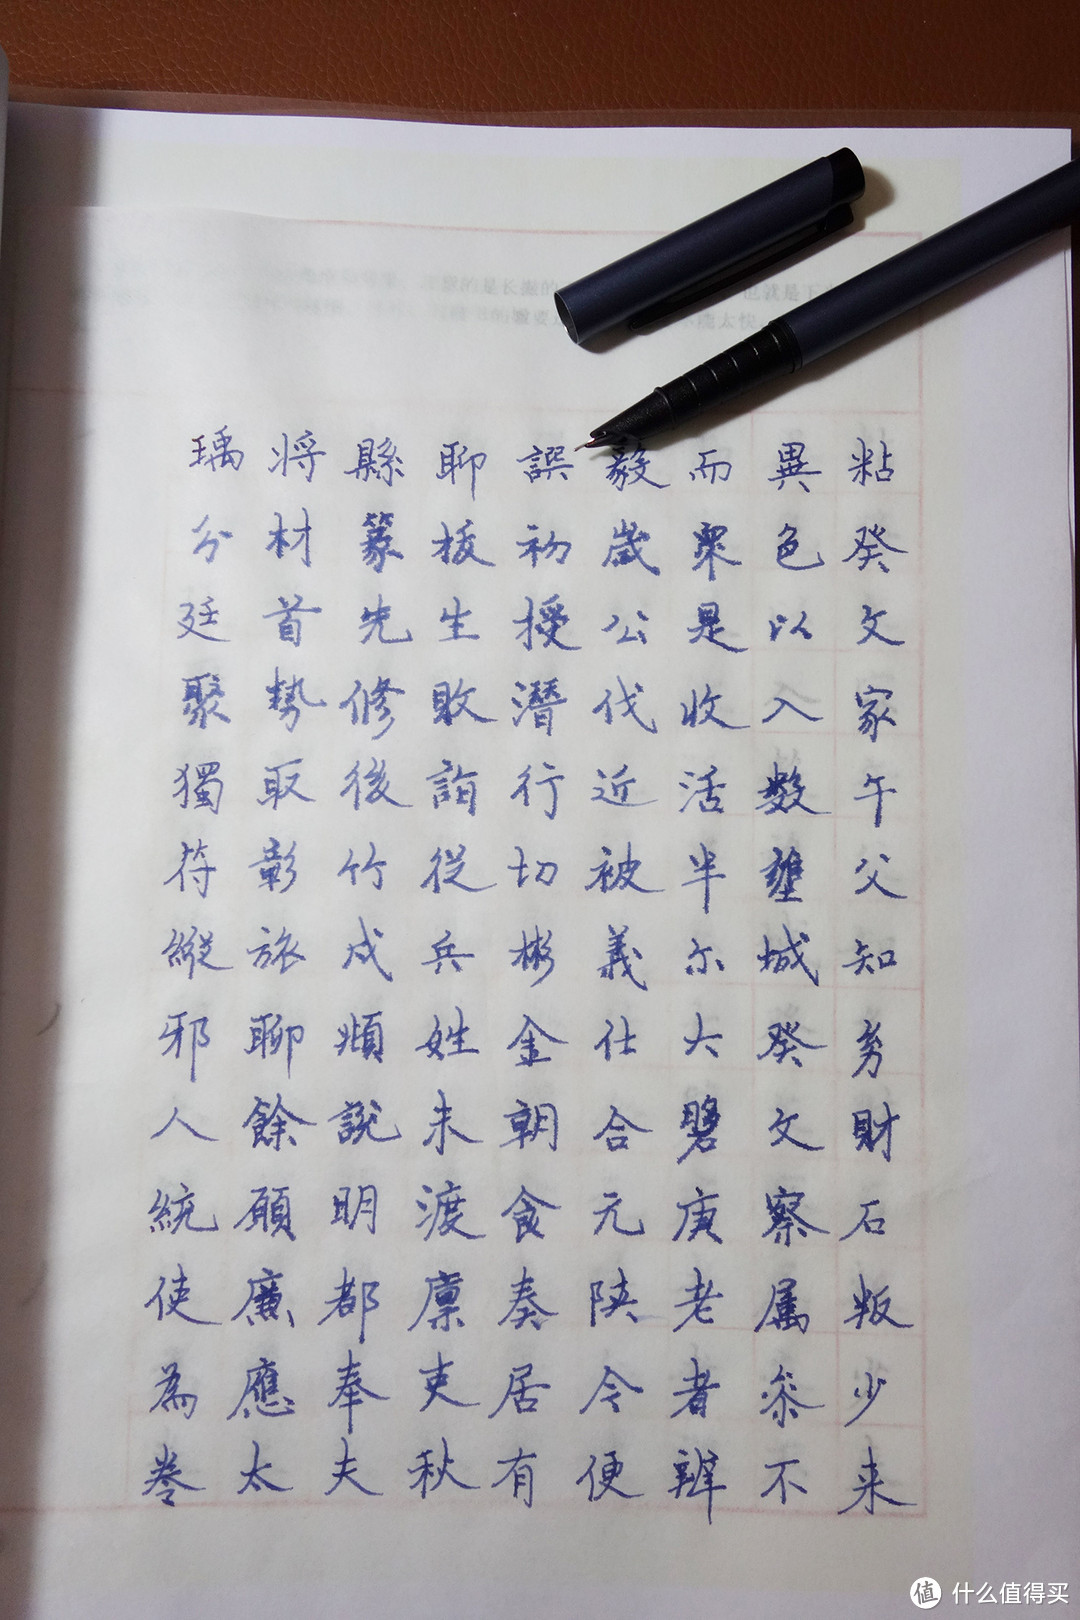 粘癸文家午父知財石叛少来
異色以入数壅城癸文察属忝不
而衆是收活半尔大庚老者辨
毅歲公伐近被義仕合元陝令便
誤初授潛行切彬金朝食奏居有
聊拔生敢詣從兵姓未渡稟吏秋
縣篆先修後竹成頻說明都奉夫
将材首勢取彰旅聊餘願廉應太
瑀分廷聚獨符縱邪人統使為卷
值 什么值得买